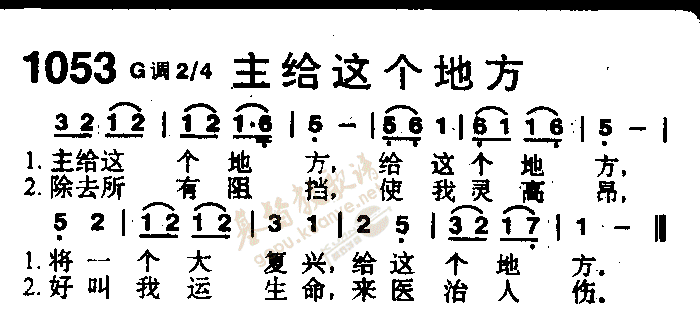 1053 G调2/4 主给这个地方
3 2 1 2 | 1 2 1·6 | 5 — | 5 6 1 | 6 1 1 6 | 5 — |
1. 主给这 个 地 方, 给 这 个 地 方,
2. 除去所 有 阻 挡, 使 我 灵 高 昂,
5 2 | 1 2 1 2 | 3 1 | 2 5 | 3 2 1 7 | 1 — ‖
1. 将 一 个 大 复 兴, 给 这 个 地 方.
2. 好 叫 我 运 生 命, 来 医 治 人 伤.